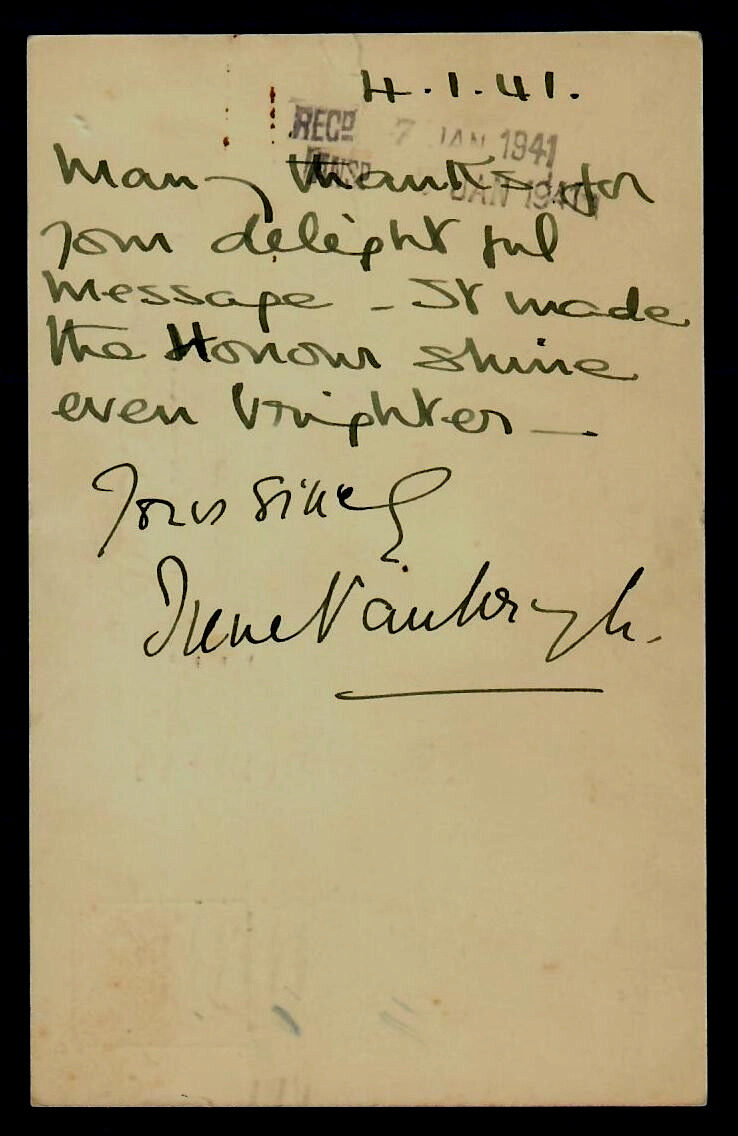 4.1.41.
RECD 7 JAN 1941
ANSD JAN 1941
Many thanks for
your delightful
message - It made
the Honour shine
even brighter —
Yours sincely
Irene Vanbrugh.